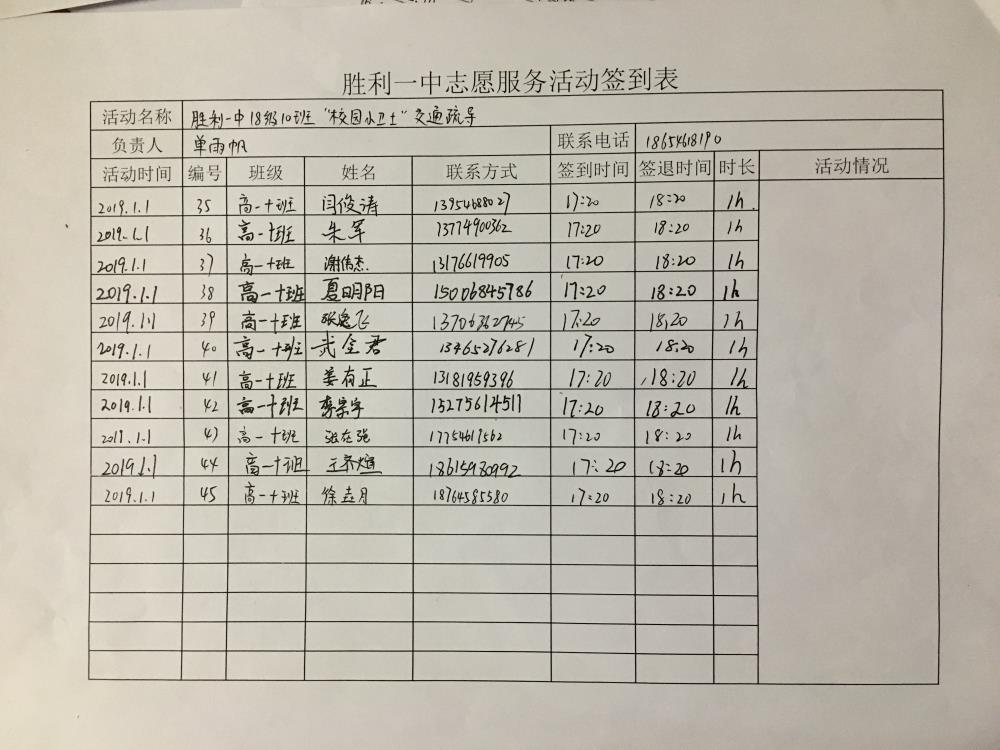 胜利一中志愿服务活动签到表
活动名称 胜利一中18级10班“校园小卫士”交通疏导
负责人 单雨帆 联系电话 18654618190
活动时间 编号 班级 姓名 联系方式 签到时间 签退时间 时长 活动情况
2019.1.1 35 高一十班 闫俊涛 13954688027 17:20 18:20 1h
2019.1.1 36 高一十班 朱军 13774900362 17:20 18:20 1h
2019.1.1 37 高一十班 谢伟杰 13176619905 17:20 18:20 1h
2019.1.1 38 高一十班 夏明阳 15006845786 17:20 18:20 1h
2019.1.1 39 高一十班 张逸飞 13706362745 17:20 18:20 1h
2019.1.1 40 高一十班 武金君 13465276281 17:20 18:20 1h
2019.1.1 41 高一十班 姜有正 13181959396 17:20 18:20 1h
2019.1.1 42 高一十班 李宗宇 15275614511 17:20 18:20 1h
2019.1.1 43 高一十班 17754617562 17:20 18:20 1h
2019.1.1 44 高一十班 18615980992 17:20 18:20 1h
2019.1.1 45 高一十班 18764585580 17:20 18:20 1h